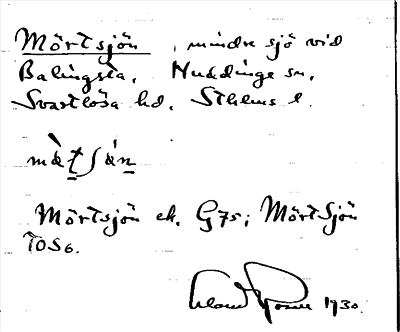 Mörtsjön, mindre sjö vid
Balingsta, Huddinge sn,
Svartlösa hd, Sthlms l.
Mörtsjön ek. G75; MörtSjön
TOS6.
1930.